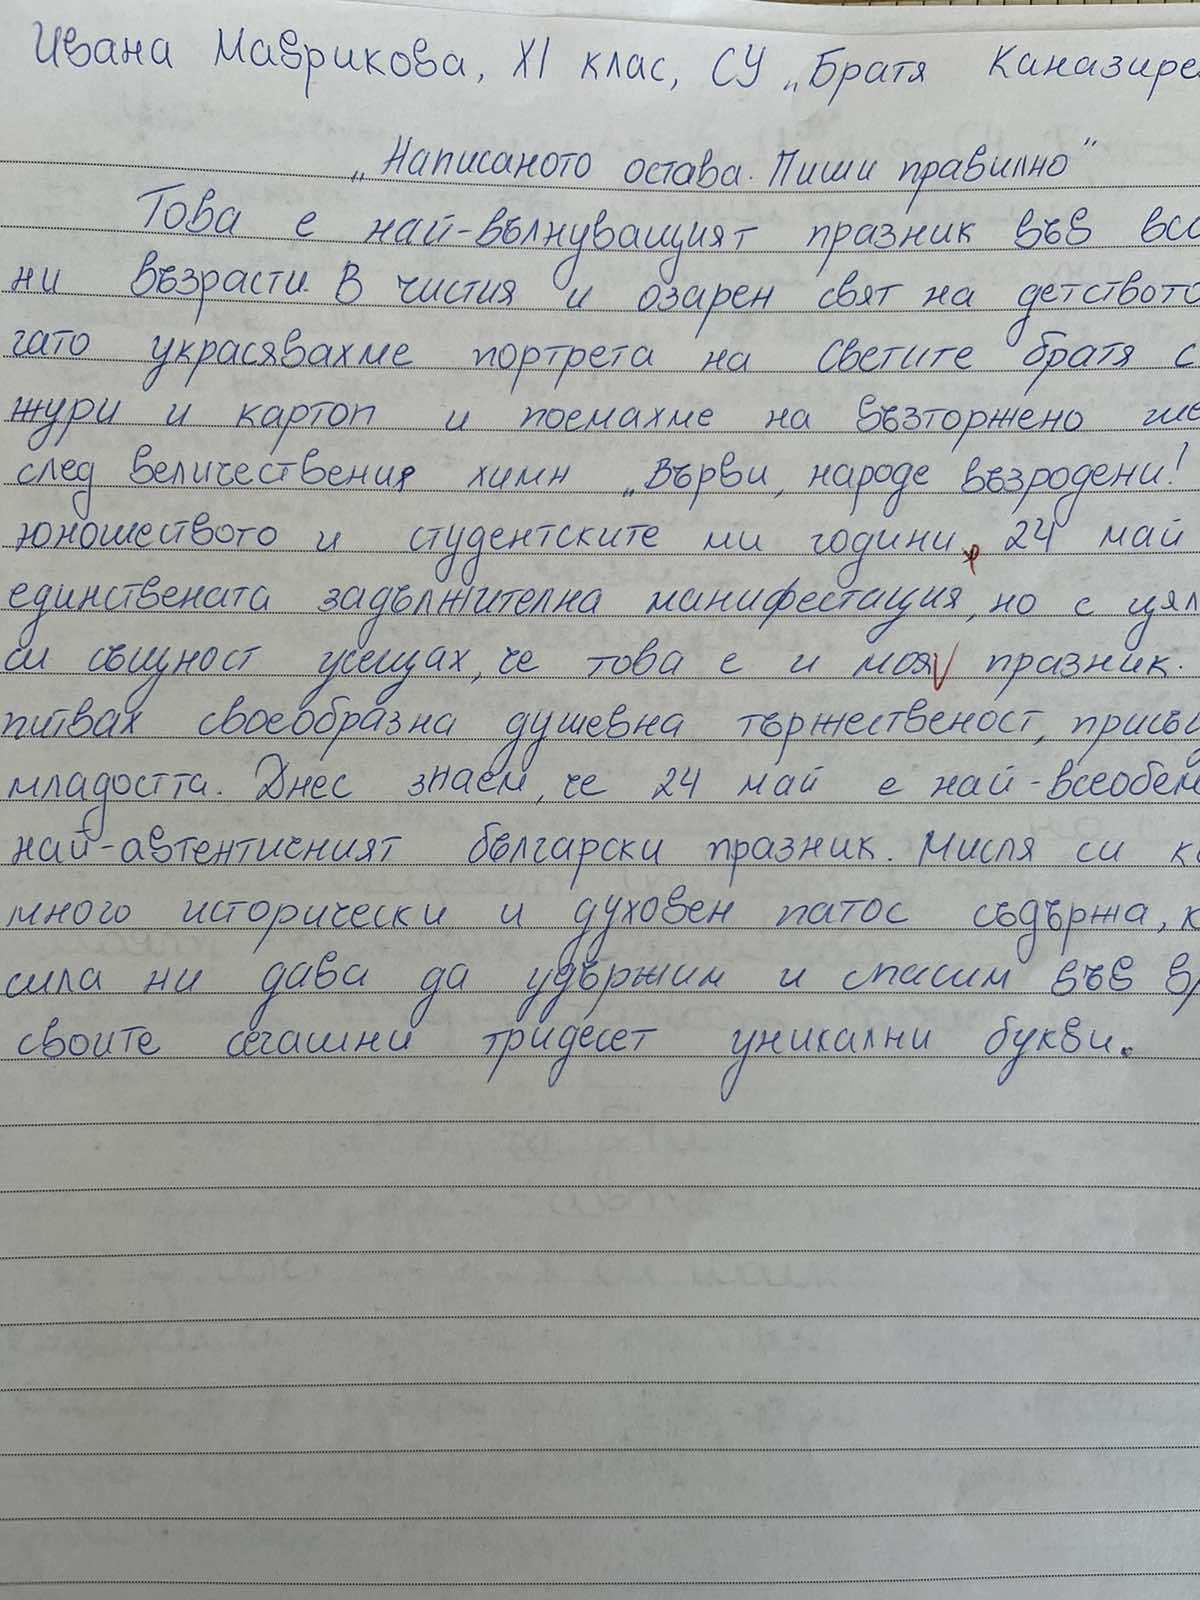 Ивана Маврикова, XI клас, СУ „Братя
„Написаното остава. Пиши правилно"
Това е най-вълнуващият празник във
ни възрасти. В чистия и озарен свят на детството
гато украсявахме портрета на Светите братя с
жури и картоп и поемахме на възторжено
след величествения химн „Върви, народе възродени!
юношеството и студентските ми години, 24 май
единствената задължителна манифестация, но с
си същност усещах, че това е и моя празник.
питвах своеобразна душевна тържественост,
младостта. Днес знаем, че 24 май е
най-автентичният български празник. Мисля си
много исторически и духовен патос съдържа,
сила ни дава да удържим и спасим във
своите сегашни тридесет уникални букви.